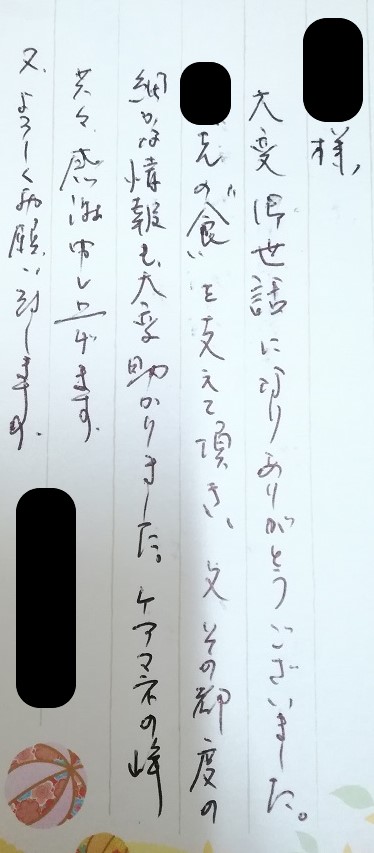 様、
大変御世話になりありがとうございました。
先の"食"を支えて頂き、又その都度の
細かな情報も大変助かりました。ケアマネの峰
共々感謝申し上げます。
又、よろしくお願い致します。